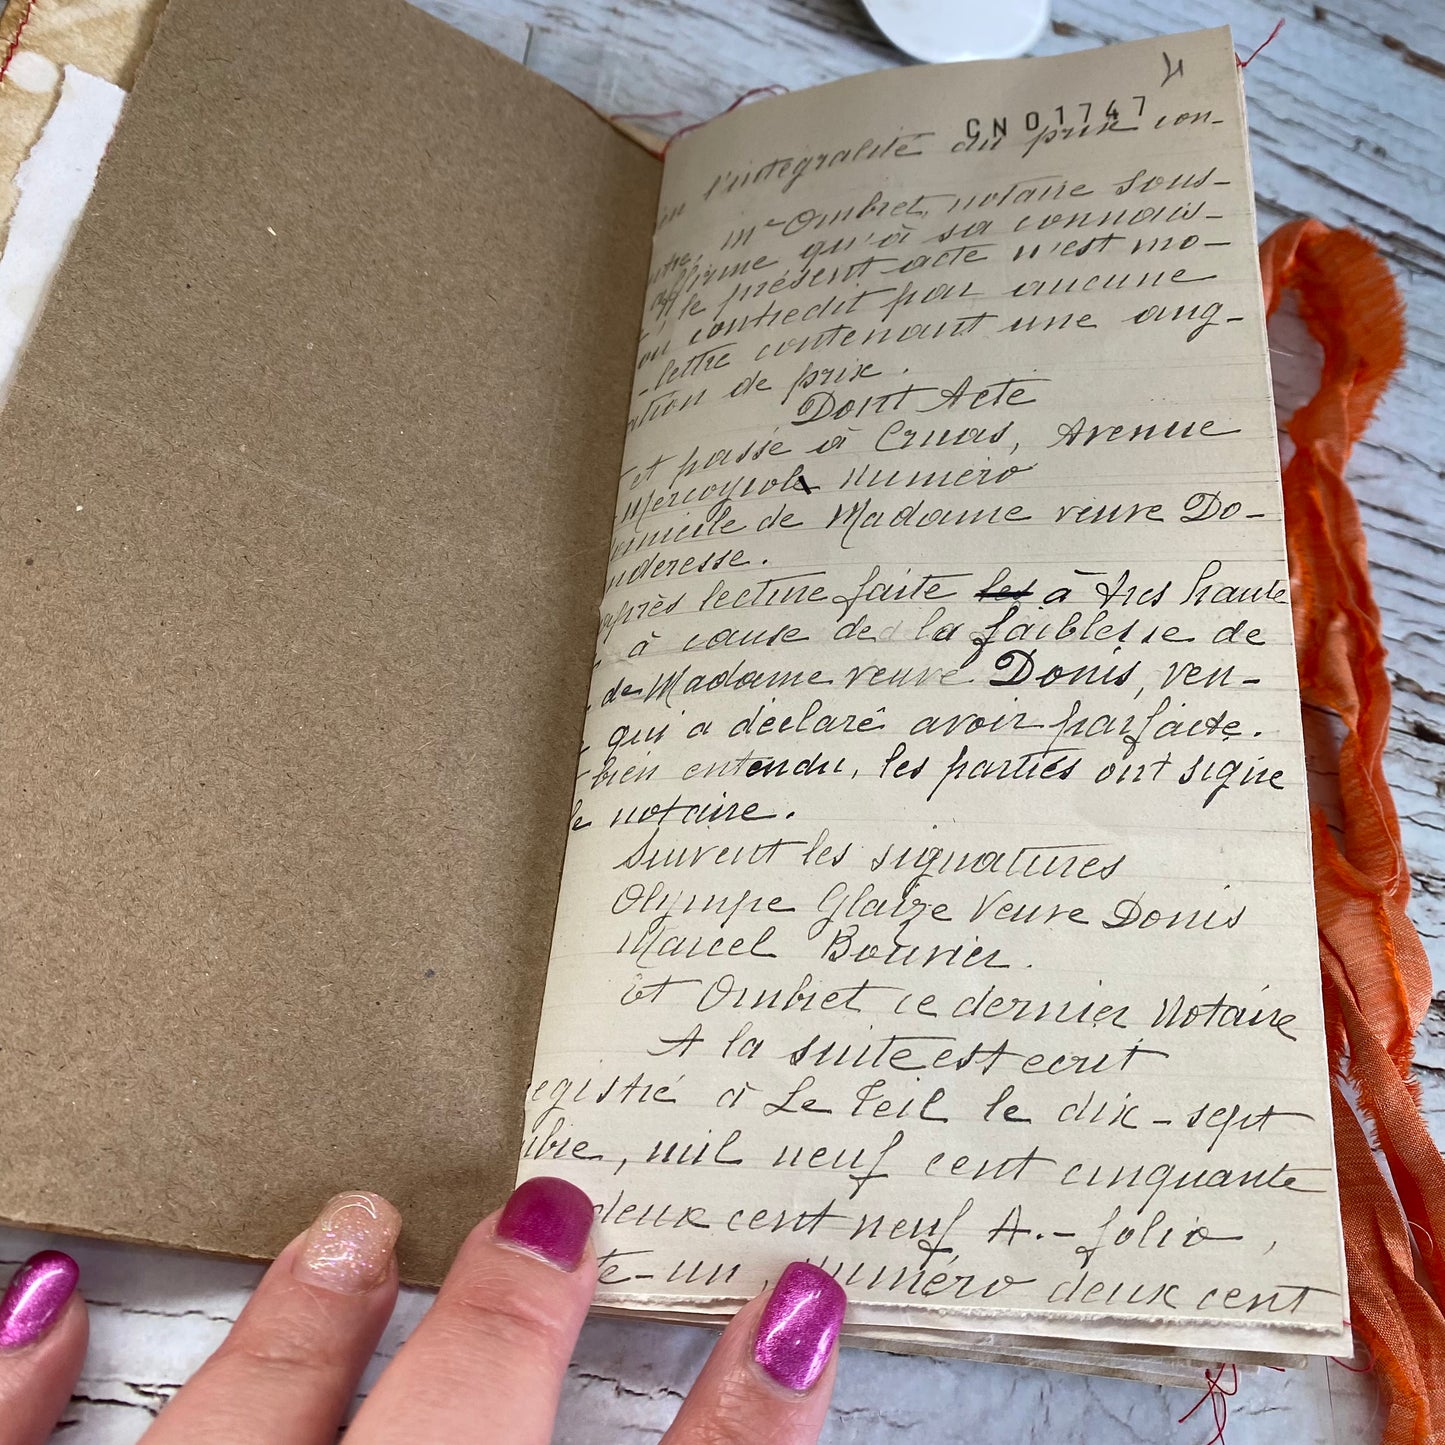 4
CN01747
l'intégralité du prix con-
Me Ombret, notaire sous-
affirme qu'à sa connais-
le présent acte n'est mo-
ou contredit par aucune
lettre contenant une aug-
ation de prix.
Dont Acte
et passé à Cruas, Avenue
Numéro
omicile de Madame veuve Do-
nderesse.
après lecture faite les à très haute
à cause de la faiblesse de
de Madame veuve Donis, ven-
qui a déclaré avoir parfaite.
bien entendu, les parties ont signé
le notaire.
Suivent les signatures
Olympe Glaize Veuve Donis
Marcel Bouvier.
Et Ombret ce dernier Notaire
A la suite est ecrit
egistré à Le Teil le dix-sept
bre, mil neuf cent cinquante
deux cent neuf A.- folio,
te-un, numéro deux cent